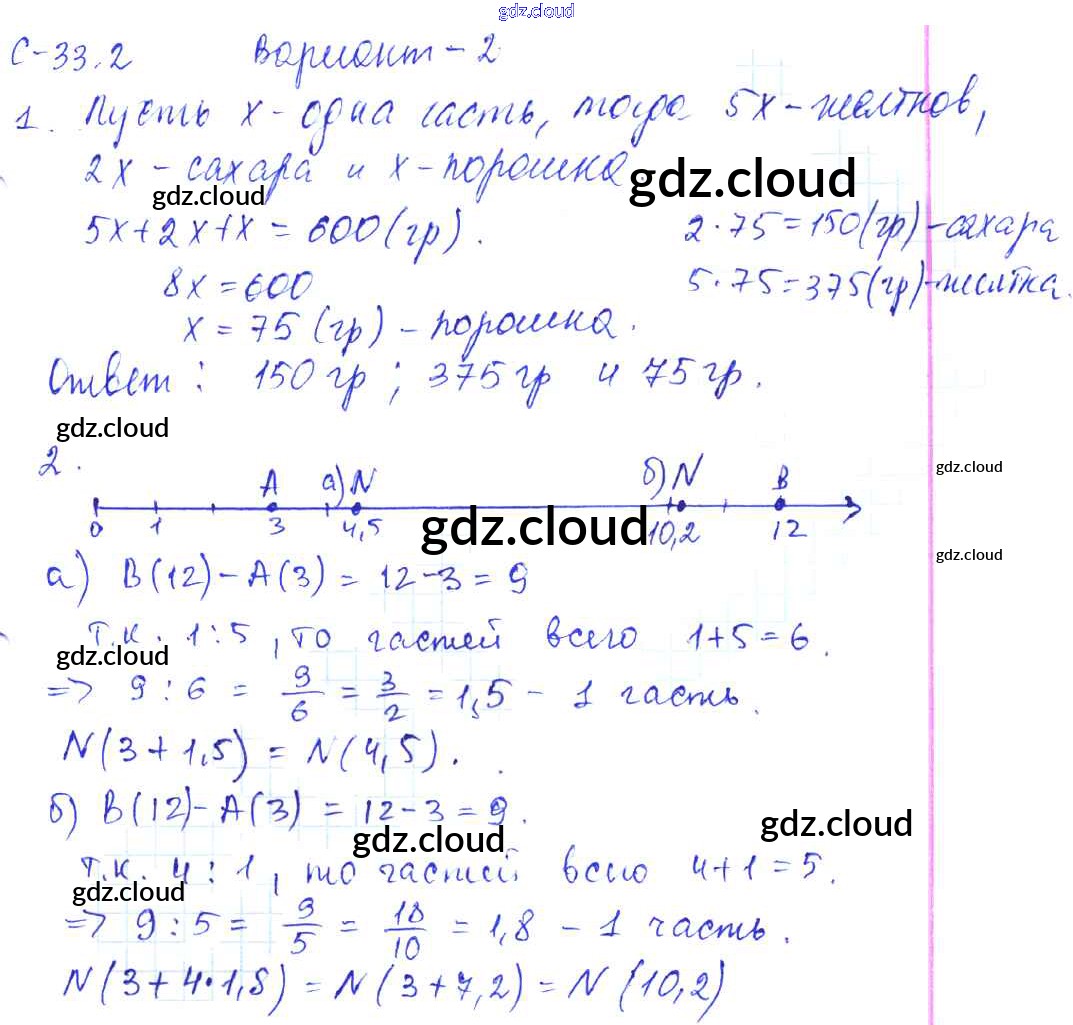 gdz.cloud
С-33.2 Вариант-2
1. Пусть x - одна часть, тогда 5x - желтков,
2x - сахара и x - порошка.
gdz.cloud gdz.cloud
5x+2x+x = 600 (гр). 2·75=150(гр)-сахара
8x = 600 5·75=375(гр)-желтка.
x = 75 (гр) - порошка.
Ответ: 150 гр; 375 гр и 75 гр.
gdz.cloud
2. A а) N б) N B
gdz.cloud
0 1 3 4,5 10,2 12
gdz.cloud gdz.cloud
а) B(12) - A(3) = 12-3 = 9
т.к. 1:5, то частей всего 1+5=6.
gdz.cloud
=> 9:6 = 9/6 = 3/2 = 1,5 - 1 часть.
N(3+1,5) = N(4,5).
б) B(12) - A(3) = 12-3=9.
gdz.cloud gdz.cloud
т.к. 4:1, то частей всего 4+1=5.
gdz.cloud
=> 9:5 = 9/5 = 18/10 = 1,8 - 1 часть.
N(3+4·1,8) = N(3+7,2) = N(10,2)